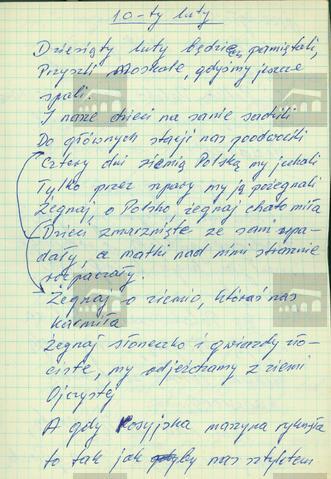 10-ty luty
Dziesiąty luty będziem pamiętali,
Przyszli Moskale, gdyśmy jeszcze
spali.
I nasze dzieci na sanie sadzili
Do głównych stacji nas poodwozili
Cztery dni ziemią Polską my jechali
Tylko przez szpary my ją pożegnali
Żegnaj, o Polsko żegnaj chato miła
Dzieci zmarznięte ze sani spa-
dały, a matki nad nimi strasznie
rozpaczały.
Żegnaj o ziemio, któraś nas
karmiła
Żegnaj słoneczko i gwiazdy zło-
ciste, my odjeżdzamy z ziemi
Ojczystej
A gdy Rosyjska maszyna ryknęła
to tak jak gdyby nas sztyletem